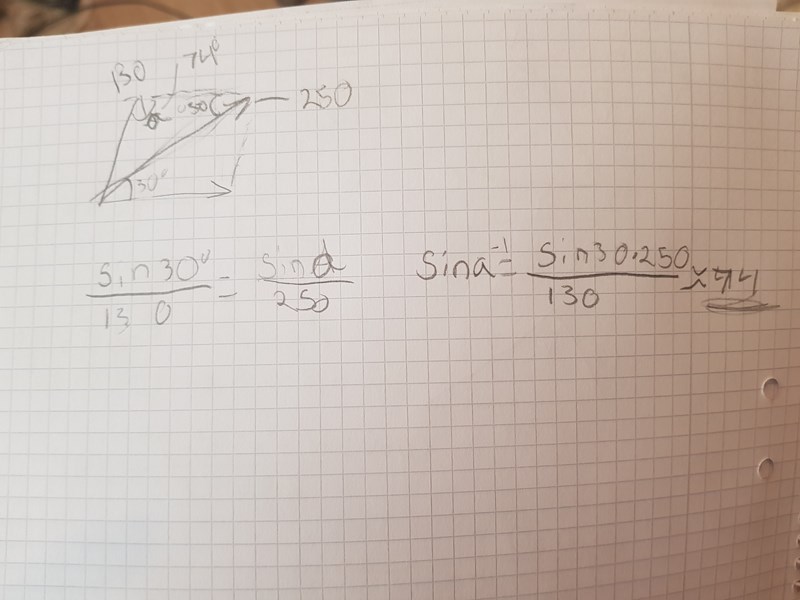 130 74°
a 30° 250
30°
sin30° / 130 = sina / 250
sina⁻¹ = sin30·250 / 130 ≈ 74